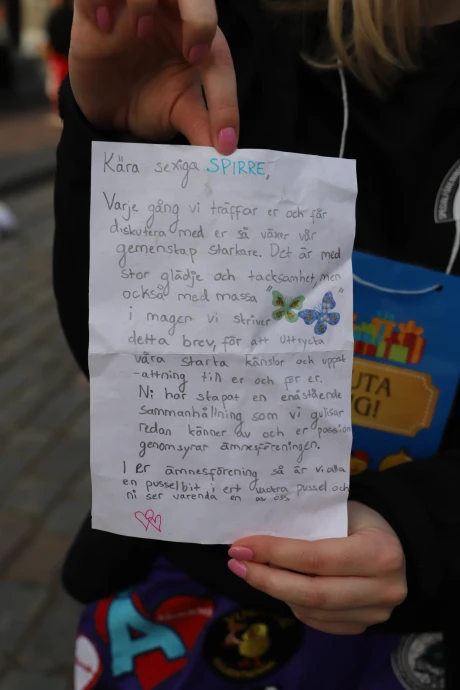 Kära sexiga SPIRRE,
Varje gång vi träffar er och får
diskutera med er så växer vår
gemenskap starkare. Det är med
stor glädje och tacksamhet, men
också med massa " "
i magen vi skriver
detta brev, för att uttrycka
våra starka känslor och uppsk
-attning till er och för er.
Ni har skapat en enastående
sammanhållning som vi gulisar
redan känner av och er passion
genomsyrar ämnesföreningen.
I er ämnesförening så är vi alla
en pusselbit i ert vackra pussel och
ni ser varenda en av oss
UTA
G!
A